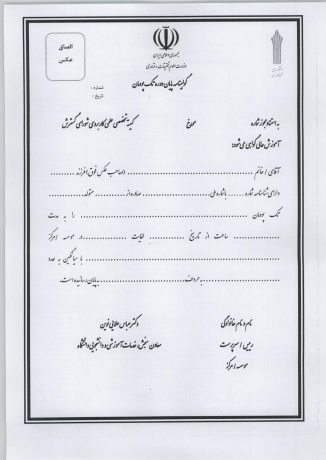 الصاق
عکس
جمهوری اسلامی ایران
وزارت علوم تحقیقات و فناوری
شماره :
تاریخ :
گواهینامه پایان دوره تک پودمان
به استناد مجوز شماره مورخ کمیته تخصصی علمی کاربردی شورای گسترش
آموزش عالی گواهی می شود:
آقای / خانم (صاحب عکس فوق) فرزند
دارای شناسنامه شماره باشماره ملی صادره از متولد
تک پودمان را به مدت
ساعت از تاریخ لغایت در موسسه / مرکز
با میانگین به عدد
به حروف به پایان رسانیده است.
نام و نام خانوادگی
رییس / سرپرست
موسسه / مرکز
دکتر عباس علایی نوین
معاون سنجش، خدمات آموزشی و دانشجویی دانشگاه